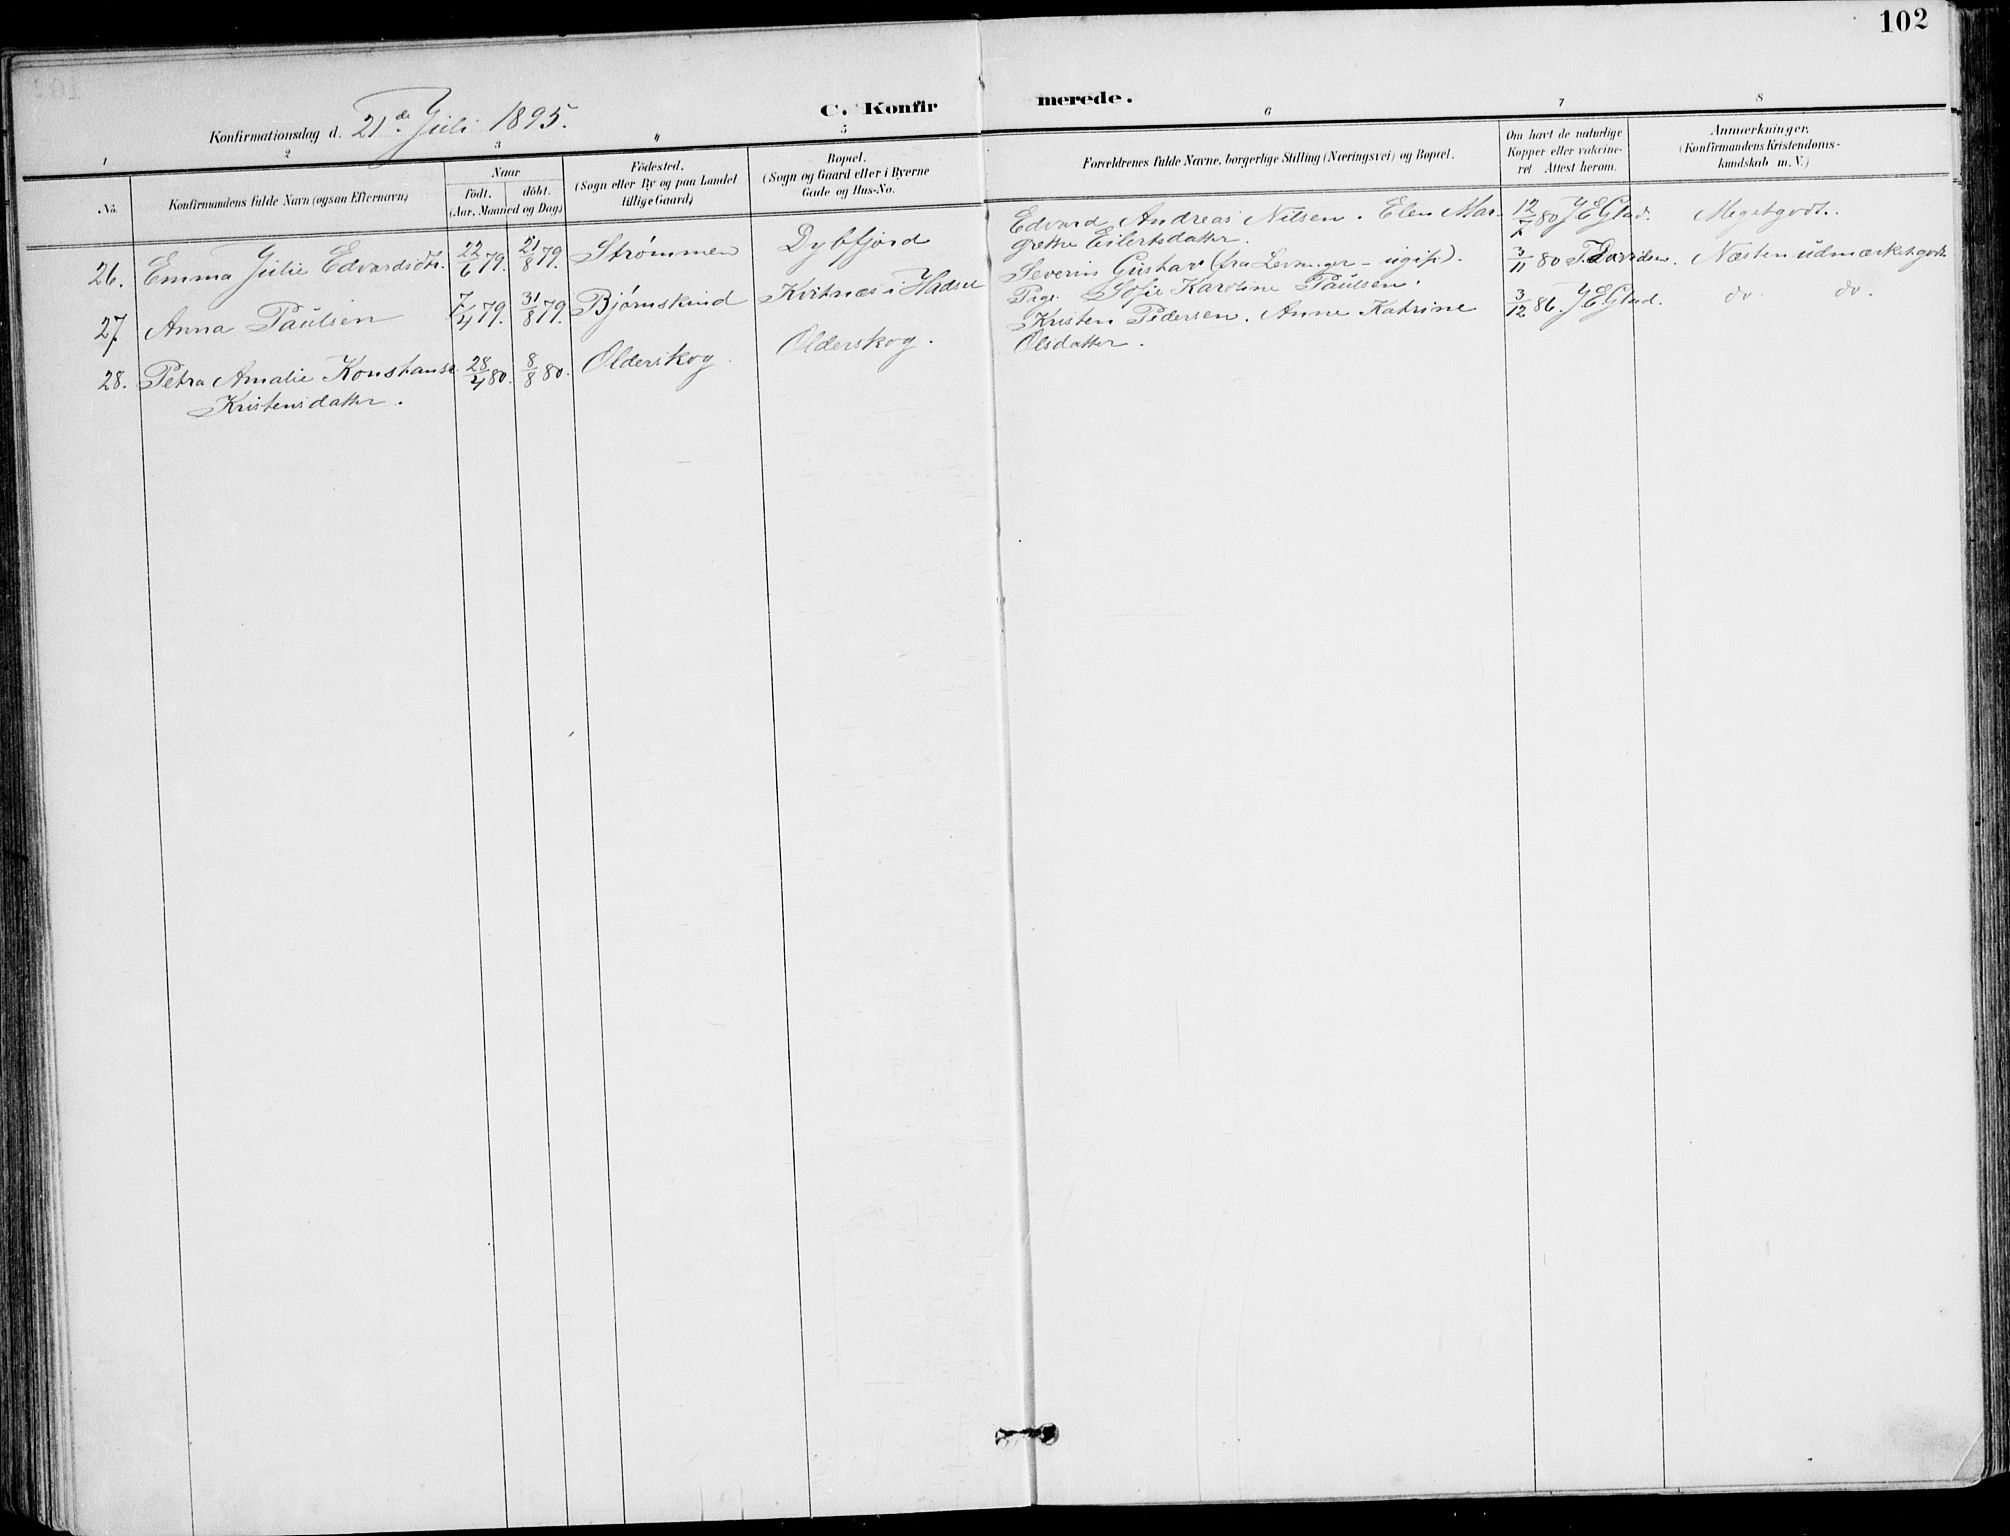 102
C. Konfir merede.
Konfirmationsdag d. 21de Juli 1895.
1 2 3 4 5 6 7 8
No.
Konfirmandens fulde Navn (ogsaa Efternavn)
Naar
födt. döbt.
(Aar, Maaned og Dag)
Födested.
(Sogn eller By og paa Landet
tillige Gaard)
Bopæl.
(Sogn og Gaard eller i Byerne
Gade og Hus-No.
Forældrenes fulde Navne, borgerlige Stilling (Næringsvei) og Bopæl.
Om havt de naturlige
Kopper eller vakcine-
ret Attest herom.
Anmærkninger.
(Konfirmandens Kristendoms-
kundskab m. V.)
26. Emma Julie Edvardsdtr. 22/6 79. 21/8 79. Strømmen Dybfjord
Edvard Andreas Nilsen. Elen Mar- 12/7 80 J E Glad. Meget godt.
grethe Eilertsdatter.
27. Anna Paulsen 7/4 79. 31/8 79. Bjørnskind Kvitnæs i Hadsel
Severin Gustav (fra Levanger - ugift). 3/11 80 T. Davidsen. Næsten udmærket godt
Pige Sofie Karoline Paulsen.
28. Petra Amalie Konstanse 28/4 80. 8/8 80. Olderskog. Olderskog.
Kristensdatter.
Kristen Pedersen. Anne Katrine 3/12 86. J E Glad. do do.
Olsdatter.